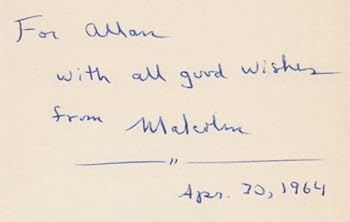 For Allan
with all good wishes
from Malcolm
"
Apr. 30, 1964